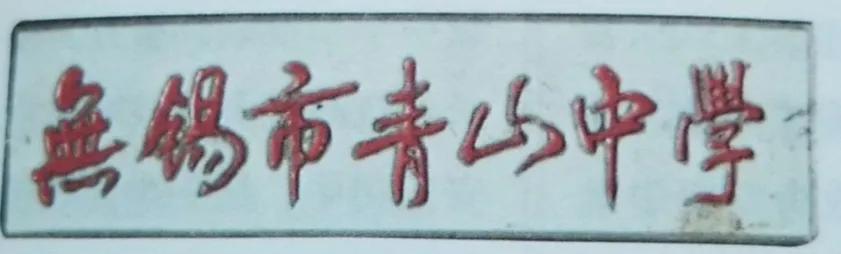 無錫市青山中學